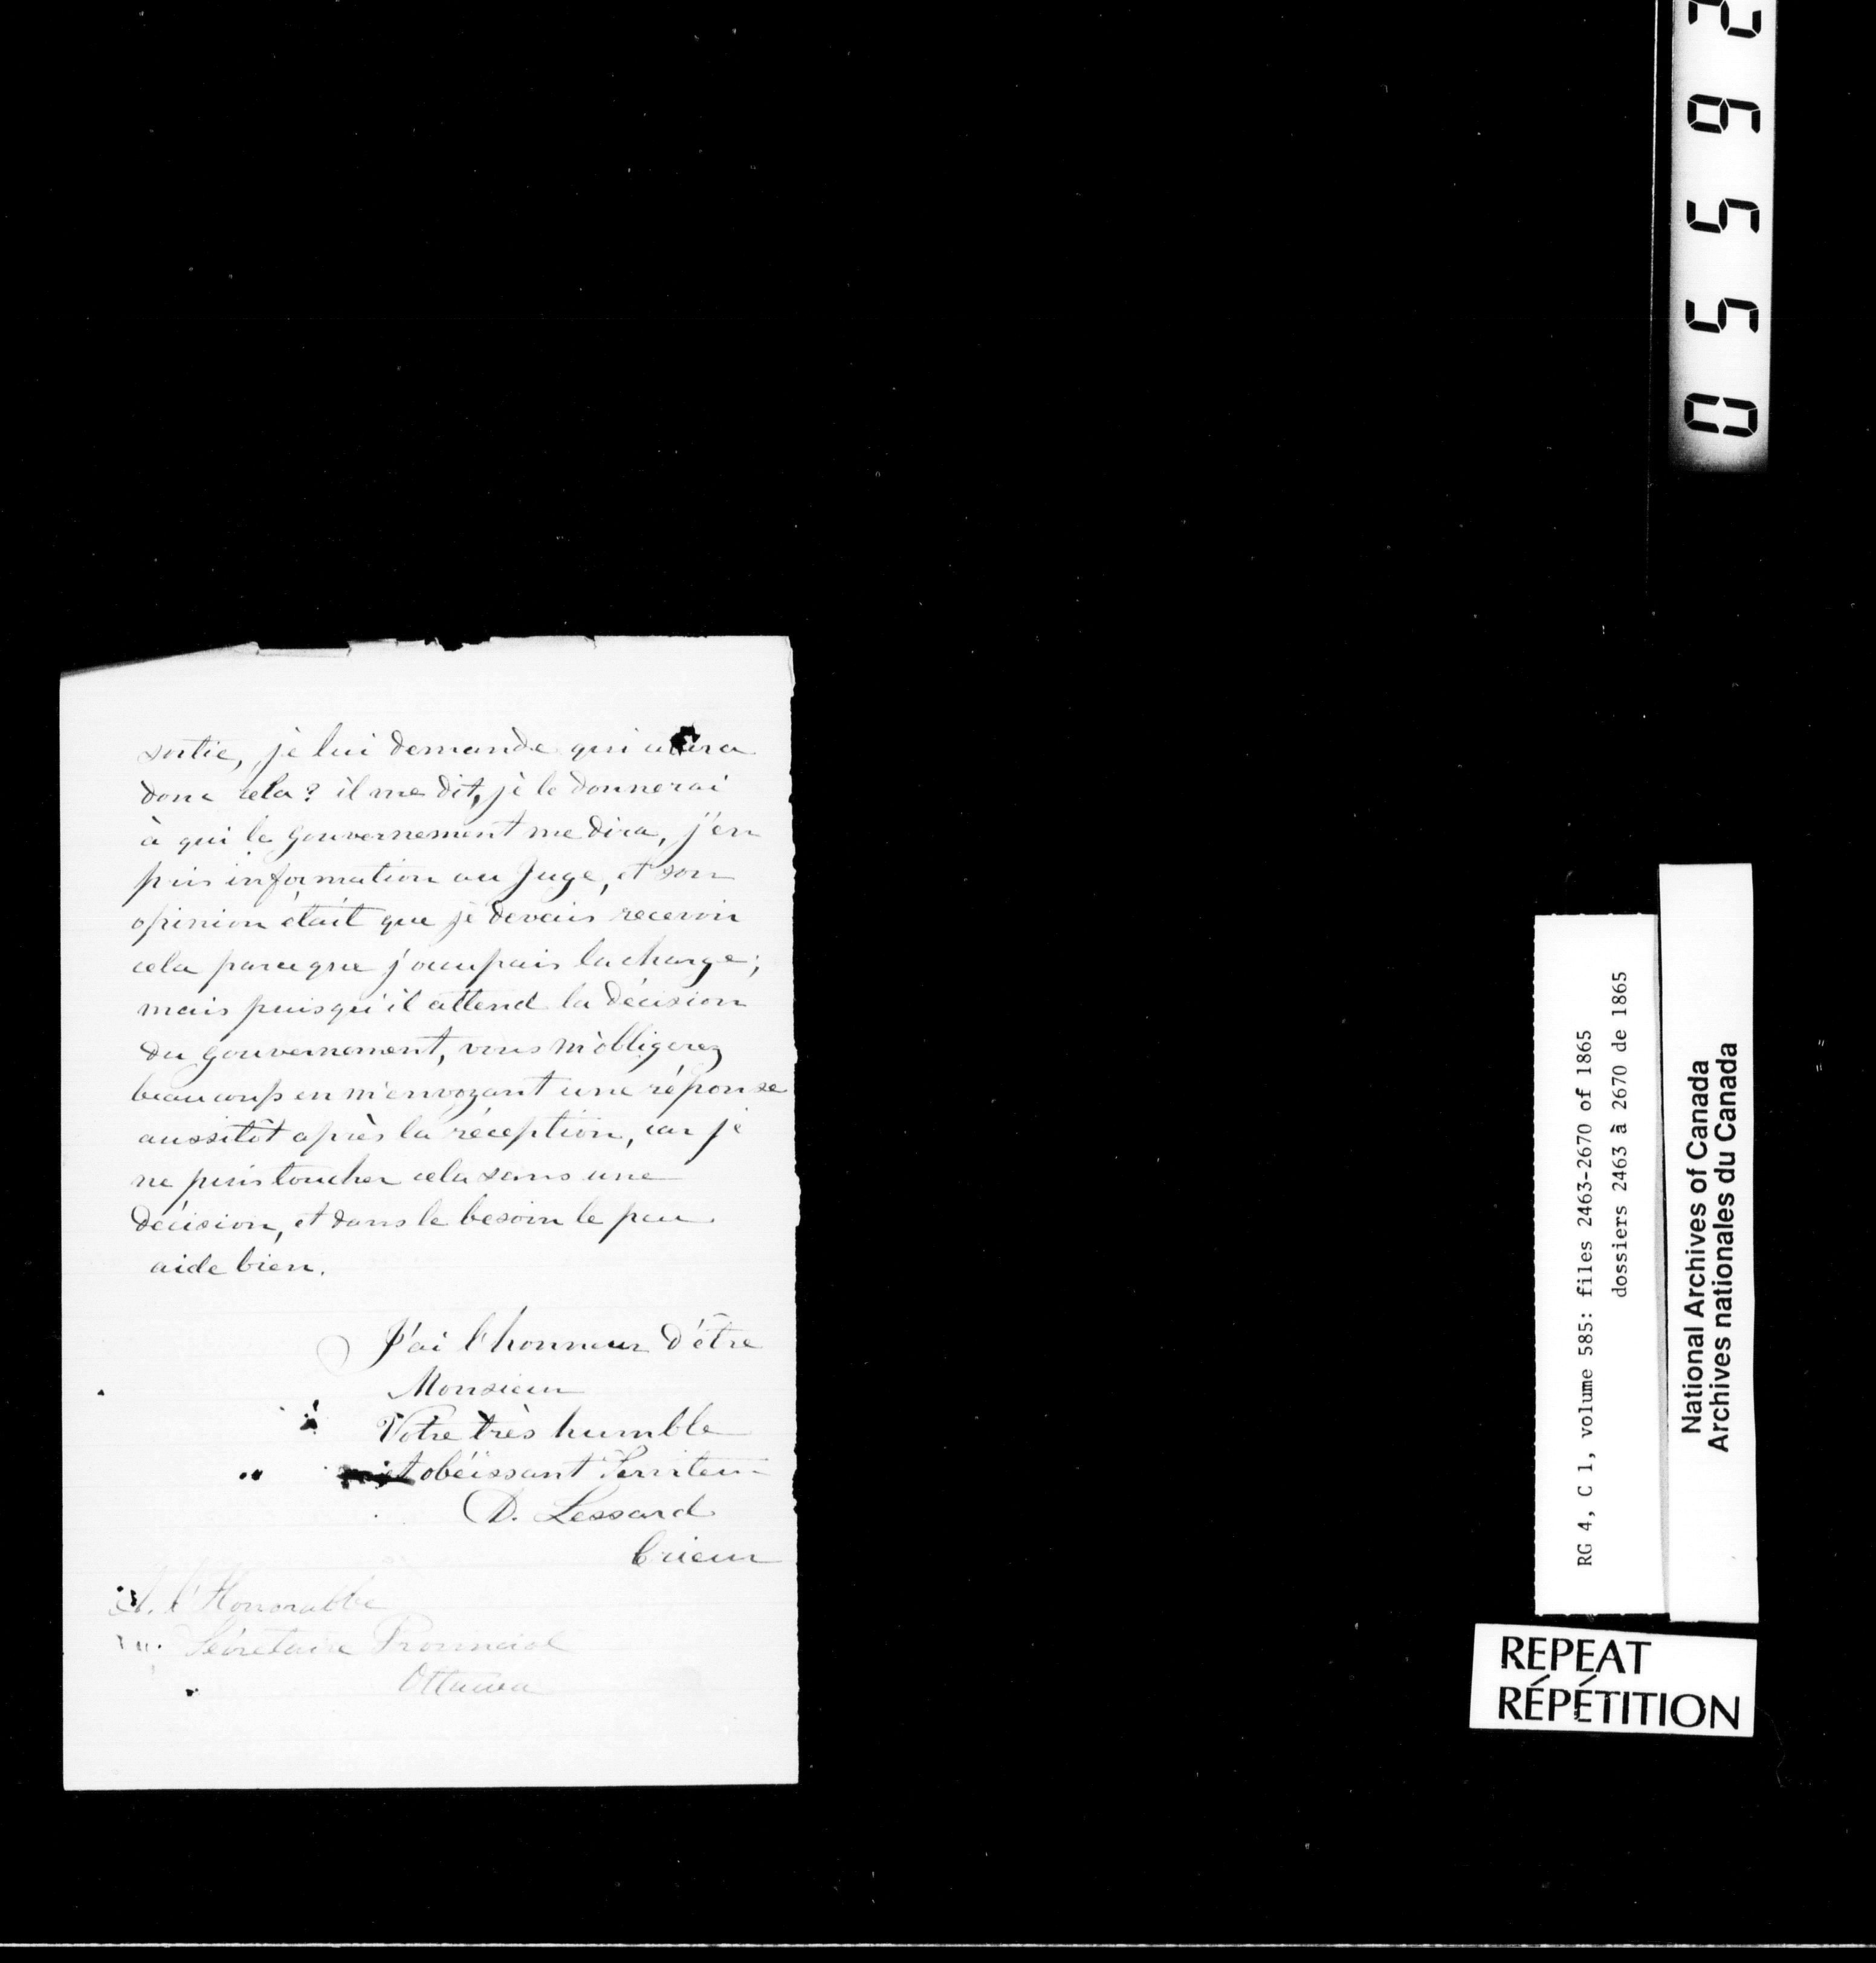 sortie, je lui demande qui aura
donc cela? il me dit, je le donnerai
à qui le gouvernement me dira, j'en
pris information au Juge, et son
opinion était que je devais recevoir
cela parceque j'occupais la charge;
mais puisqu'il attend la décision
du gouvernement, vous m'obligerez
beaucoup en m'envoyant une réponse
aussitôt après la réception, car je
ne puis toucher cela sans une
décision, et dans le besoin le peu
aide bien.
J'ai l'honneur d'être
Monsieur
Votre très humble
et obéissant Serviteur
D. Lessard
Crieur
A. l'Honorable
Sécretaire Provincial
Ottawa
05592
RG 4, C 1, volume 585: files 2463-2670 of 1865
dossiers 2463 à 2670 de 1865
National Archives of Canada
Archives nationales du Canada
REPEAT
RÉPÉTITION